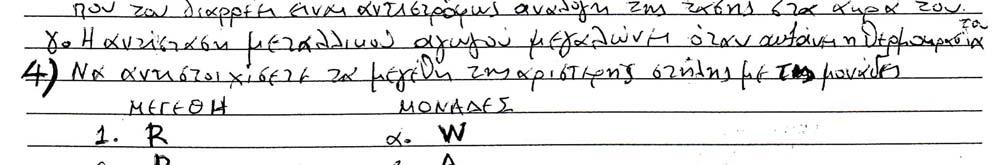 που τον διαρρέει είναι αντιστρόφως ανάλογη της τάσης στα άκρα του.
γ. Η αντίσταση μεταλλικού αγωγού μεγαλώνει όταν αυξάνει η θερμοκρασία του
4) Να αντιστοιχίσετε τα μεγέθη της αριστερής στήλης με τις μονάδες
ΜΕΓΕΘΗ ΜΟΝΑΔΕΣ
1. R α. W